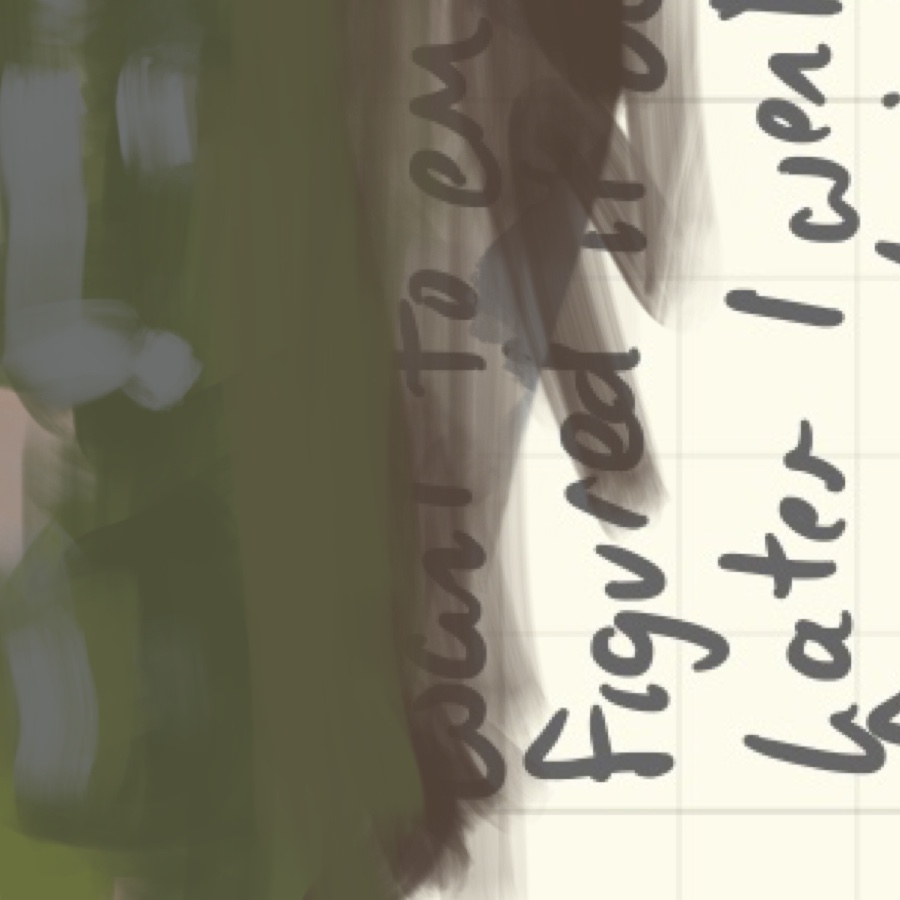 want to em
figured it ou
later I went